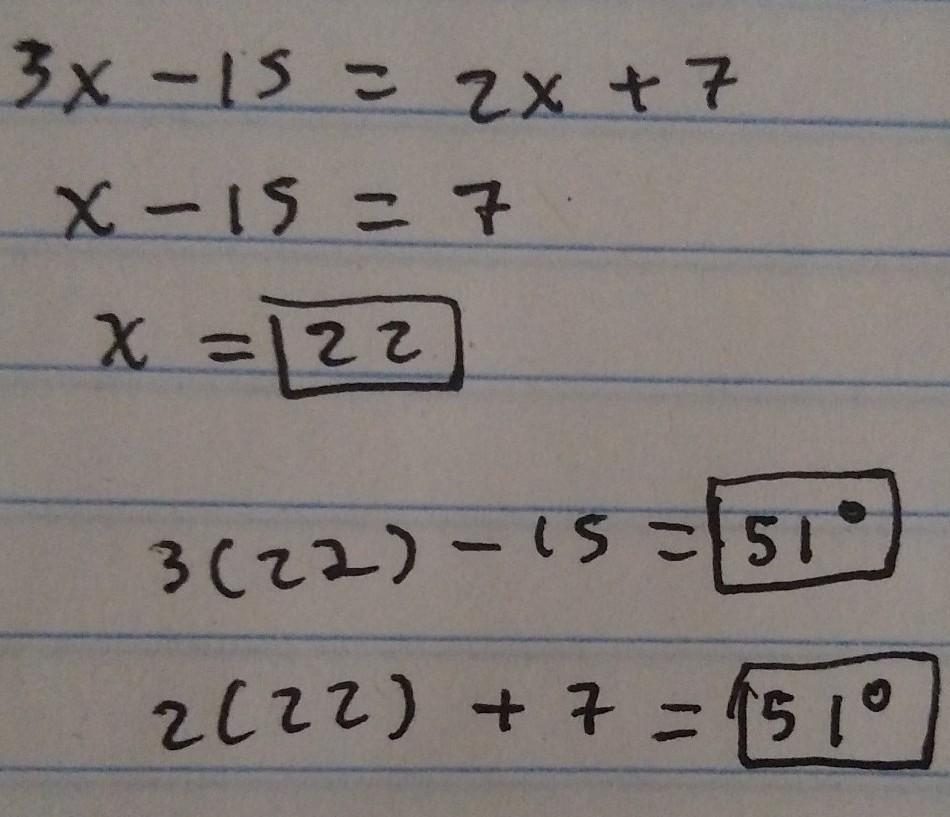 3x - 15 = 2x + 7
x - 15 = 7
x = 22
3(22) - 15 = 51°
2(22) + 7 = 51°